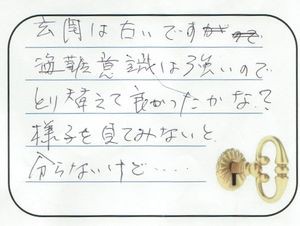 玄関は古いですが
意識は強いので
とり替えて良かったかな?
様子を見てみないと
分らないけど……